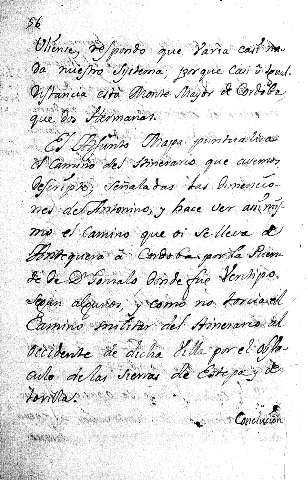 56
Uliense, respondo que varia casi na
da nuestro systema, porque casi igual
distancia está Monte Mayor de Cordoba
que dos Hermanas.
El Adjunto Mapa puntualiza
el Camino del Itinerario que avemos
descripto, señaladas las dimencio
nes del Antonino, y hace ver asimis
mo el camino que oi se lleva de
Antequera à Cordoba por la Puen
te de Dn Gonzalo donde fue Ventipo
segun algunos, y como no torcia el
Camino militar del Itinerario al
occidente de dicha Villa por el obsta
culo de las sierras de Estepa y de
torilla.
Conclusion